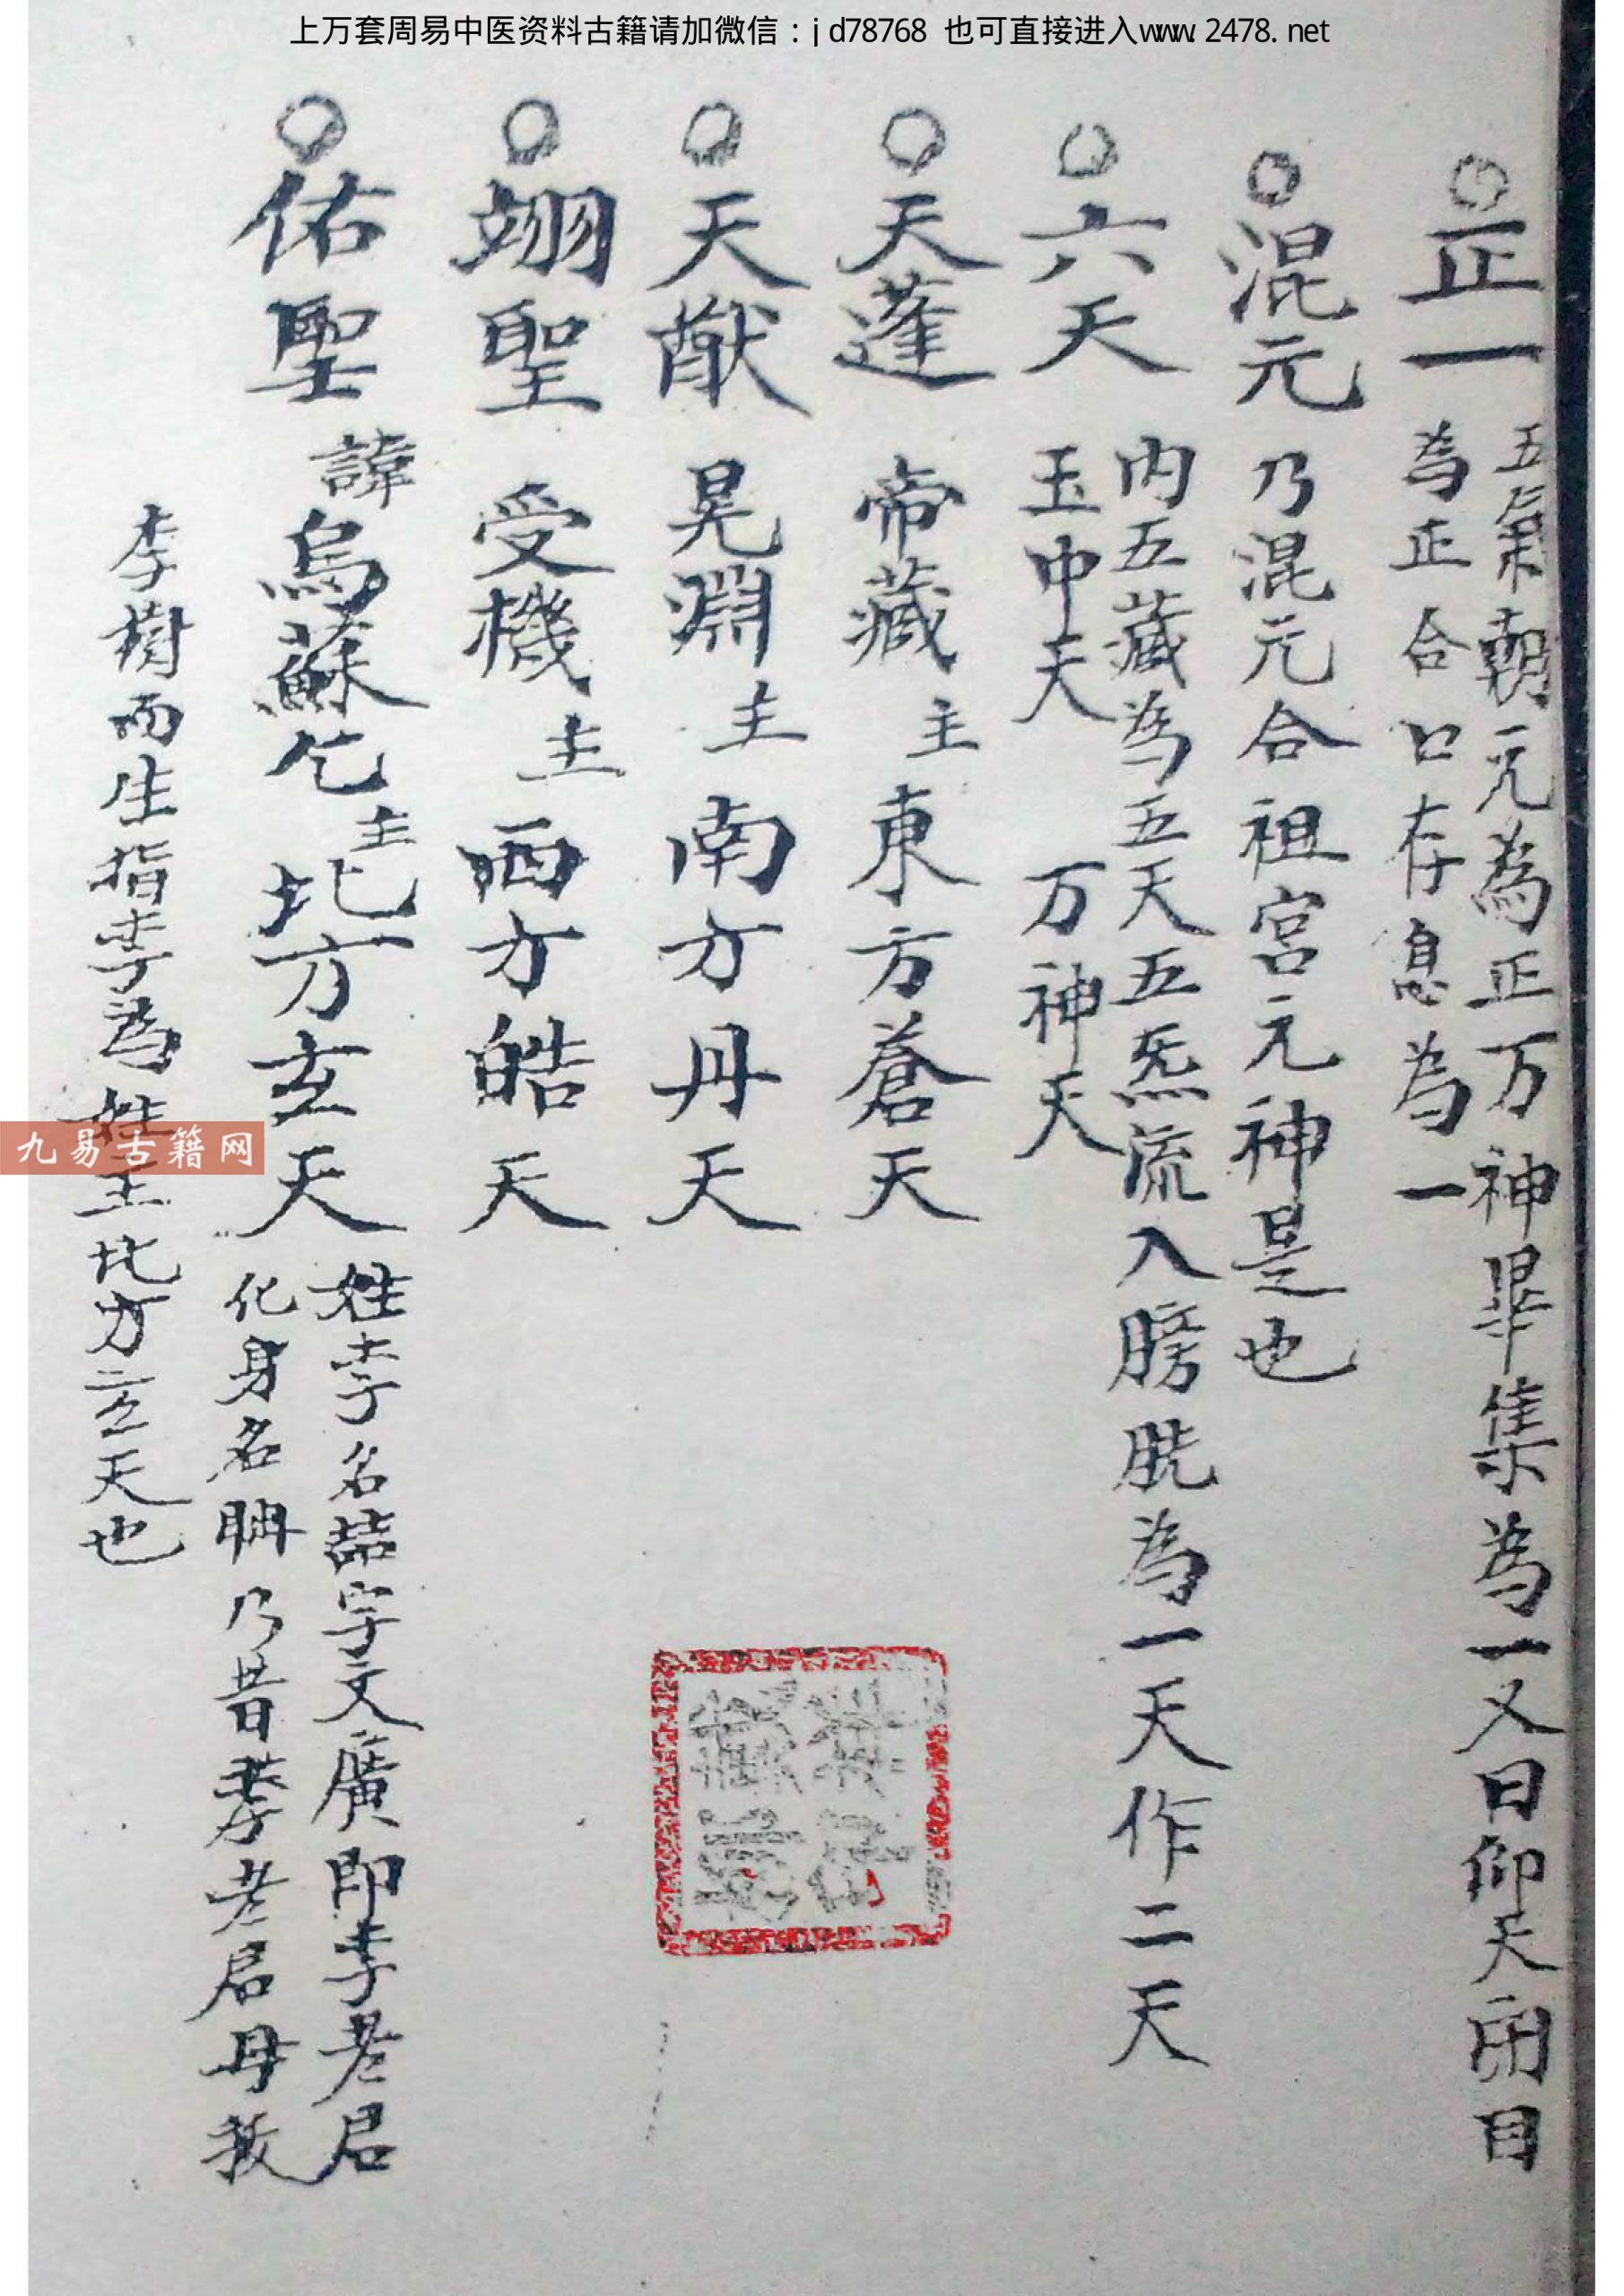 上万套周易中医资料古籍请加微信：jd78768 也可直接进入www.2478.net
○正一
五炁朝元為正万神畢集為一又曰仰天閉目
為正合口存息為一
○混元 乃混元合祖宮元神是也
○六天
内五藏為五天五炁流入膀胱為一天作二天
玉中天 万神天
○天蓬 帝藏主東方蒼天
○天猷 晃淵主南方丹天
○翊聖 受機主西方皓天
○佑聖 諱烏蘇乞主北方玄天
姓李名喆字文廣即李老君
化身名聃乃昔李老君母孕
李樹而生指李為姓主北方玄天也
九易古籍网